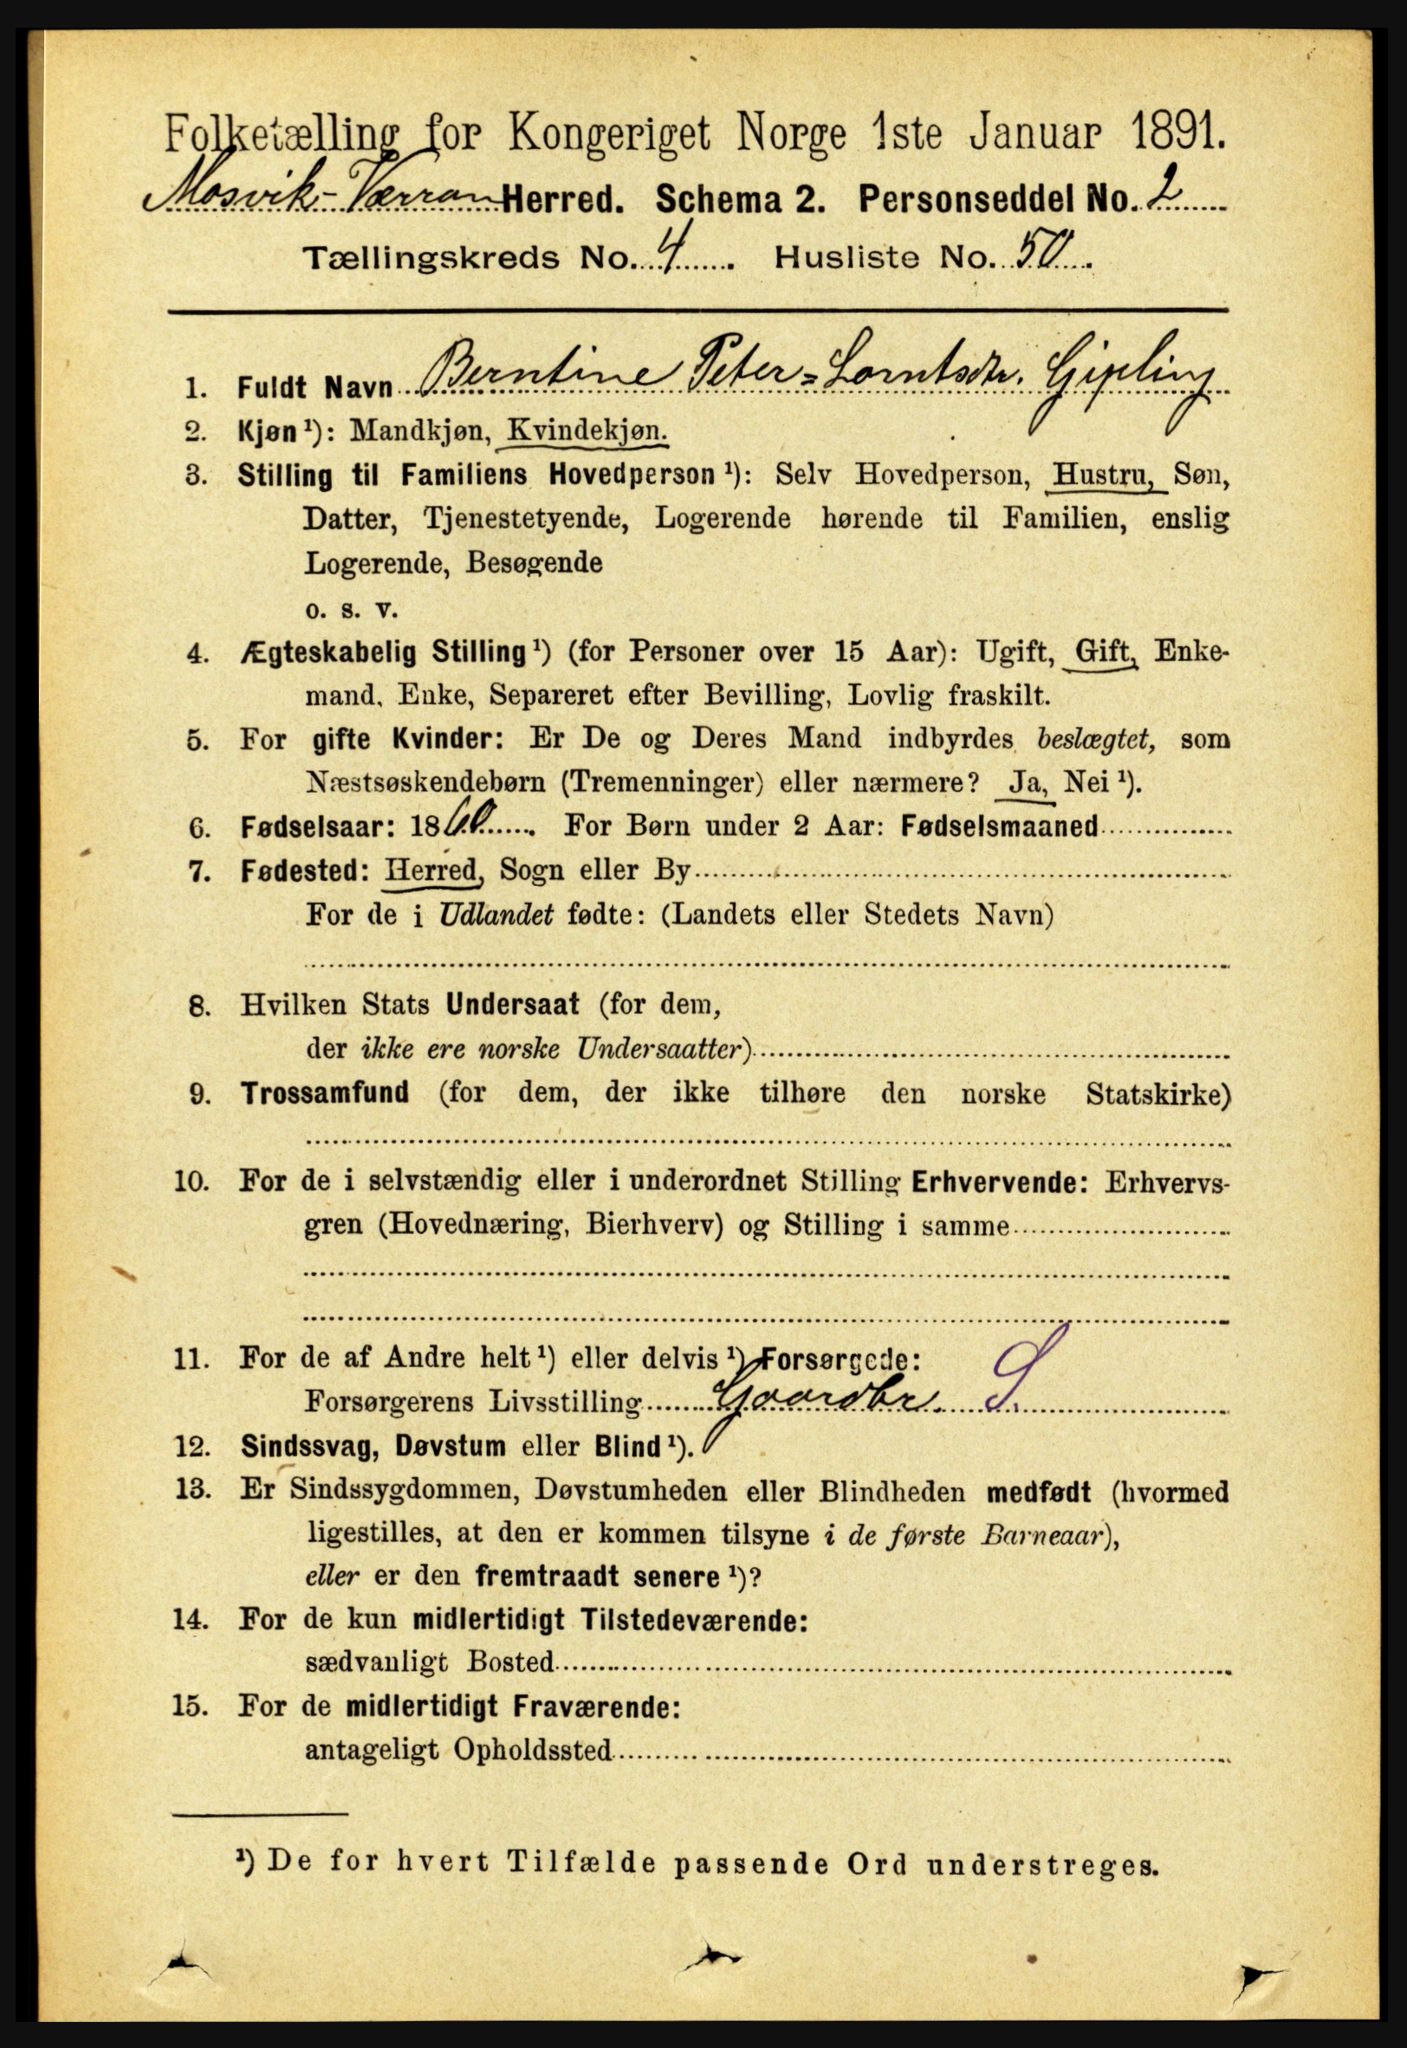 Folketælling for Kongeriget Norge 1ste Januar 1891.
Mosvik-Værran Herred. Schema 2. Personseddel No. 2
Tællingskreds No. 4. Husliste No. 50.
1. Fuldt Navn Berntine Peter-Lorntsdtr. Gipling
2. Kjøn ¹): Mandkjøn, Kvindekjøn.
3. Stilling til Familiens Hovedperson ¹): Selv Hovedperson, Hustru, Søn,
Datter, Tjenestetyende, Logerende hørende til Familien, enslig
Logerende, Besøgende
o. s. v.
4. Ægteskabelig Stilling ¹) (for Personer over 15 Aar): Ugift, Gift, Enke-
mand, Enke, Separeret efter Bevilling, Lovlig fraskilt.
5. For gifte Kvinder: Er De og Deres Mand indbyrdes beslægtet, som
Næstsøskendebørn (Tremenninger) eller nærmere? Ja, Nei ¹).
6. Fødselsaar: 1860. For Børn under 2 Aar: Fødselsmaaned
7. Fødested: Herred, Sogn eller By
For de i Udlandet fødte: (Landets eller Stedets Navn)
8. Hvilken Stats Undersaat (for dem,
der ikke ere norske Undersaatter)
9. Trossamfund (for dem, der ikke tilhøre den norske Statskirke)
10. For de i selvstændig eller i underordnet Stilling Erhvervende: Erhvervs-
gren (Hovednæring, Bierhverv) og Stilling i samme
11. For de af Andre helt ¹) eller delvis ¹) Forsørgede:
Forsørgerens Livsstilling Gaardbr. S.
12. Sindssvag, Døvstum eller Blind ¹).
13. Er Sindssygdommen, Døvstumheden eller Blindheden medfødt (hvormed
ligestilles, at den er kommen tilsyne i de første Barneaar),
eller er den fremtraadt senere ¹)?
14. For de kun midlertidigt Tilstedeværende:
sædvanligt Bosted
15. For de midlertidigt Fraværende:
antageligt Opholdssted
¹) De for hvert Tilfælde passende Ord understreges.